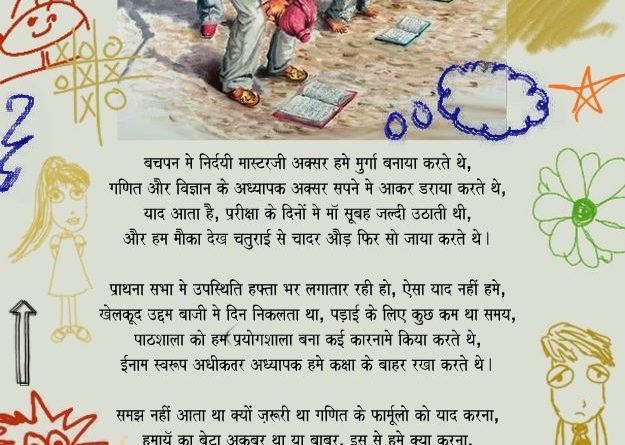 बचपन मे निर्दयी मास्टरजी अक्सर हमे मुर्गा बनाया करते थे,
गणित और विज्ञान के अध्यापक अक्सर सपने मे आकर डराया करते थे,
याद आता है, प्ररीक्षा के दिनों मे माँ सूबह जल्दी उठाती थी,
और हम मौका देख चतुराई से चादर औड़ फिर सो जाया करते थे।
प्राथना सभा मे उपस्थिति हफ्ता भर लगातार रही हो, ऐसा याद नहीं हमे,
खेलकूद उद्दम बाजी मे दिन निकलता था, पड़ाई के लिए कुछ कम था समय,
पाठशाला को हम प्रयोगशाला बना कई कारनामे किया करते थे,
ईनाम स्वरूप अधीकतर अध्यापक हमे कक्षा के बाहर रखा करते थे।
समझ नहीं आता था क्यों ज़रूरी था गणित के फार्मूलो को याद करना,
हुमायूँ का बेटा अकबर था या बाबर, इस से हमे क्या करना,